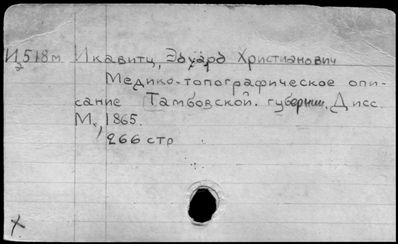 И518м Икавитц, Эдуард Христианович
2
Медико-топографическое опи-
сание Тамбовской. губернии. Дисс.
М., 1865.
266 стр